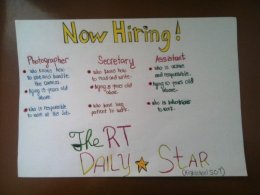 Now Hiring!
Photographer
Who knows how
to use and handle
the camera.
18 years old
above.
Who is responsible
to work at the job.
Secretary
Who knows how
to read and write.
18 years old
above.
Who has long
patient to work.
Assistant
Who is active
and responsible.
18 years old
above.
Who is
to work.
The RT
DAILY STAR